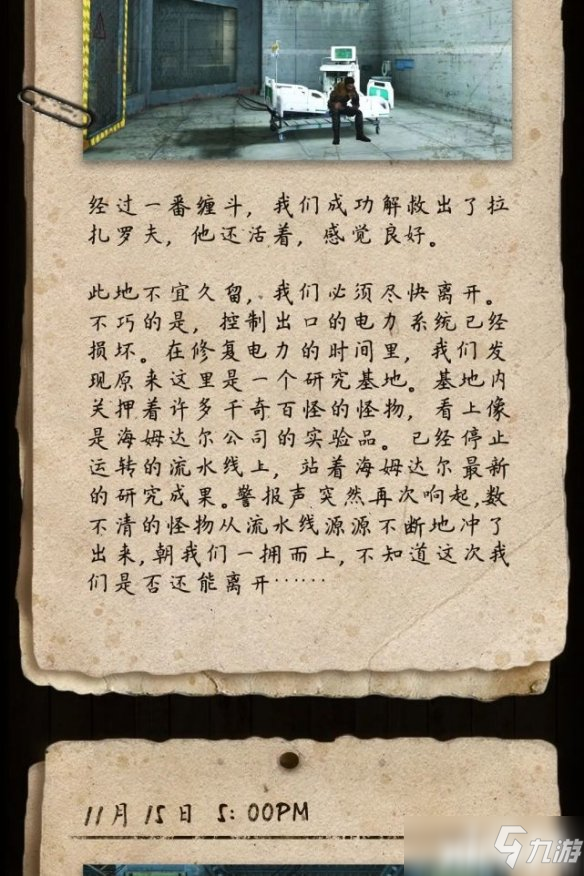 经过一番缠斗，我们成功解救出了拉
扎罗夫，他还活着，感觉良好。
此地不宜久留，我们必须尽快离开。
不巧的是，控制出口的电力系统已经
损坏。在修复电力的时间里，我们发
现原来这里是一个研究基地。基地内
关押着许多千奇百怪的怪物，看上像
是海姆达尔公司的实验品。已经停止
运转的流水线上，站着海姆达尔最新
的研究成果。警报声突然再次响起,数
不清的怪物从流水线源源不断地冲了
出来,朝我们一拥而上,不知道这次我
们是否还能离开……
11月15日 5:00PM
九游